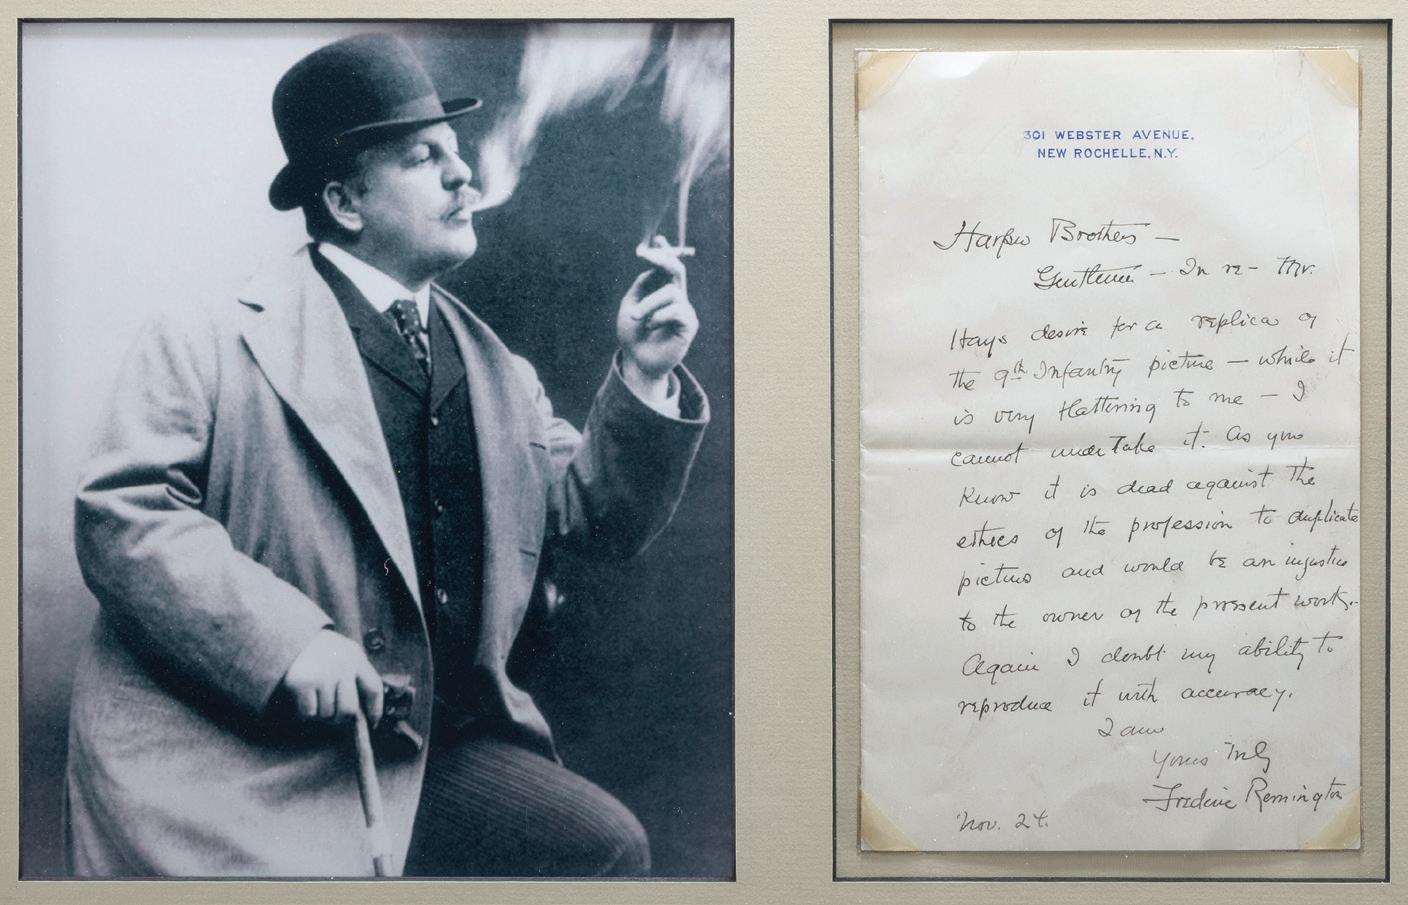 301 WEBSTER AVENUE,
NEW ROCHELLE, N.Y.
Harper Brothers —
Gentlemen — In re — Mr.
Hays desire for a replica of
the 9th Infantry picture — while it
is very flattering to me — I
cannot undertake it. As you
know it is dead against the
ethics of the profession to duplicate
pictures and would be an injustice
to the owner of the present work.
Again I doubt my ability to
reproduce it with accuracy.
I am
Yours truly
Frederic Remington
Nov. 24.